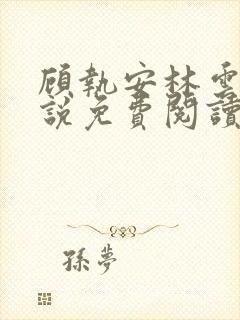 顾執安林雲
說免費閱讀
孫夢